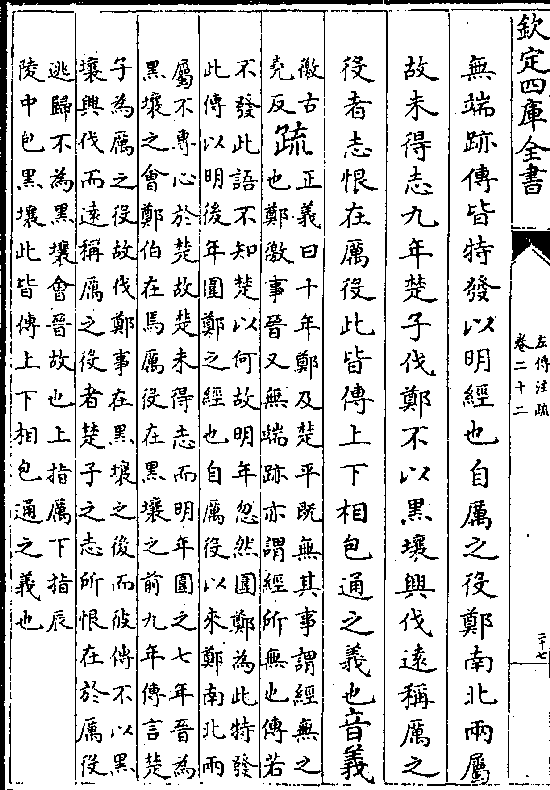 欽定四庫全書
左傳注疏
卷二十二
二十七
無端跡傳皆特發以明經也自厲之役鄭南北兩屬
故未得志九年楚子伐鄭不以黑壤興伐遠稱厲之
役者志恨在厲役此皆傳上下相包通之義也音義
徼古
堯反
疏
正義曰十年鄭及楚平既無其事謂經無之
也鄭徼事晉又無端跡亦謂經所無也傳若
不發此語不知楚以何故明年忽然圍鄭為此特發
此傳以明後年圍鄭之經也自厲役以來鄭南北兩
屬不專心於楚故楚未得志而明年圍之七年晉為
黑壤之會鄭伯在焉厲役在黑壤之前九年傳言楚
子為厲之役故伐鄭事在黑壤之後而彼傳不以黑
壤興伐而遠稱厲之役者楚子之志所恨在於厲役
逃歸不為黑壤會晉故也上指厲下指辰
陵中包黑壤此皆傳上下相包通之義也